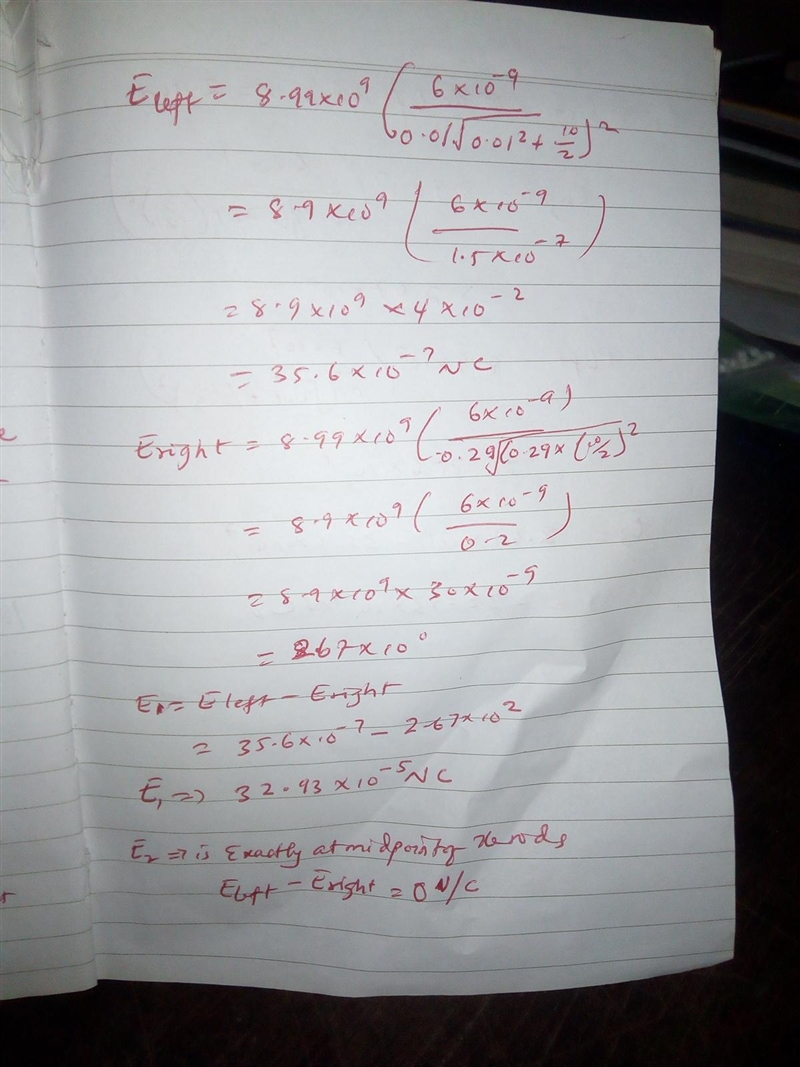 E left = 8.99x10⁹ ( 6x10⁻⁹ / 0.01√0.01² + 10/2 )²
= 8.9x10⁹ ( 6x10⁻⁹ / 1.5x10⁻⁷ )
= 8.9x10⁹ x 4x10⁻²
= 35.6x10⁻⁷ NC
Eright = 8.99x10⁹ ( 6x10⁻⁹) / -0.29√(0.29x(10/2)²
= 8.9x10⁹ ( 6x10⁻⁹ / 0-2 )
= 8.9x10⁹ x 30x10⁻⁹
= 267x10⁰
E₁ = E left - Eright
= 35.6x10⁻⁷ - 2.67x10²
E₁ => 32.93x10⁻⁵ NC
E₂ => is Exactly at midpoint of the rods
Eleft - Eright = 0 N/C